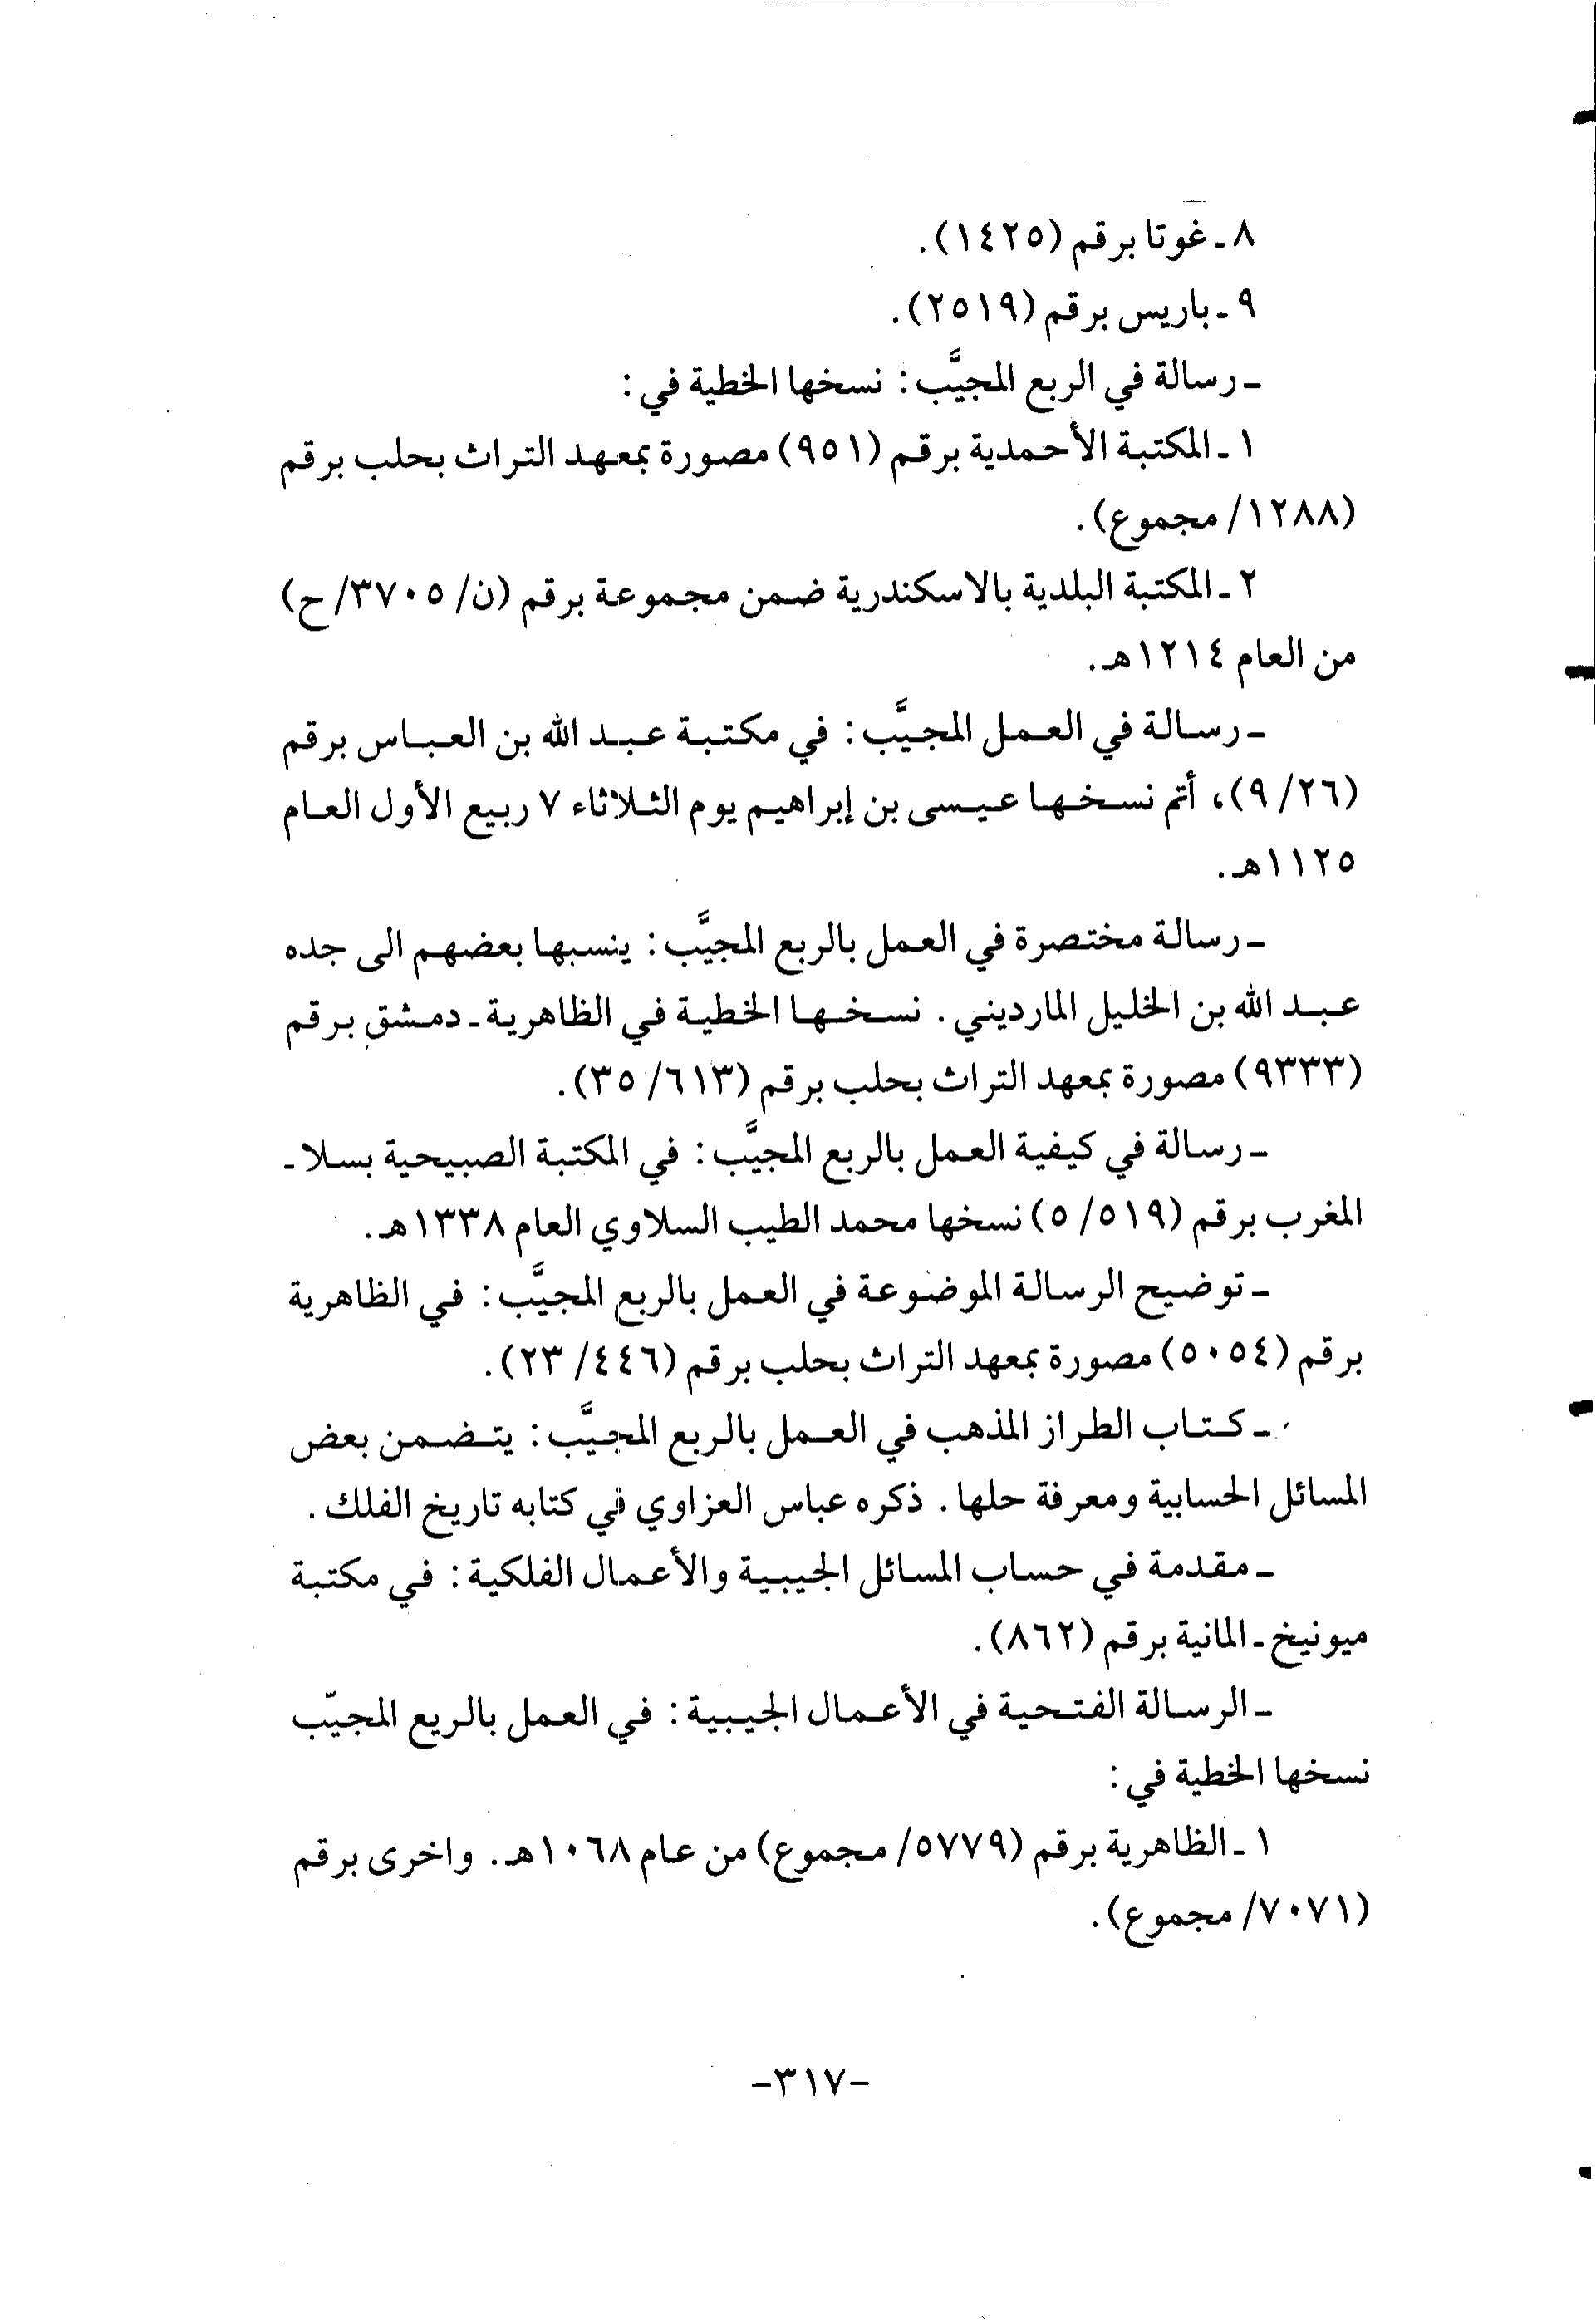 ٨ ـ غوتا برقم (١٤٢٥).
٩ ـ باريس برقم (٢٥١٩).
ـ رسالة في الربع المجيَّب: نسخها الخطية في:
١ ـ المكتبة الأحمدية برقم (٩٥١) مصورة بمعهد التراث بحلب برقم
(١٢٨٨/ مجموع).
٢ ـ المكتبة البلدية بالاسكندرية ضمن مجموعة برقم (ن/ ٣٧٠٥/ ح)
من العام ١٢١٤هـ.
ـ رسالة في العمل المجيَّب: في مكتبة عبد الله بن العباس برقم
(٢٦/ ٩)، أتم نسخها عيسى بن إبراهيم يوم الثلاثاء ٧ ربيع الأول العام
١١٢٥هـ.
ـ رسالة مختصرة في العمل بالربع المجيَّب: ينسبها بعضهم الى جده
عبد الله بن الخليل المارديني. نسخها الخطية في الظاهرية ـ دمشق برقم
(٩٣٣٣) مصورة بمعهد التراث بحلب برقم (٦١٣/ ٣٥).
ـ رسالة في كيفية العمل بالربع المجيَّب: في المكتبة الصبيحية بسلا ـ
المغرب برقم (٥١٩/ ٥) نسخها محمد الطيب السلاوي العام ١٣٣٨هـ.
ـ توضيح الرسالة الموضوعة في العمل بالربع المجيَّب: في الظاهرية
برقم (٥٠٥٤) مصورة بمعهد التراث بحلب برقم (٤٤٦/ ٢٣).
ـ كتاب الطراز المذهب في العمل بالربع المجيَّب: يتضمن بعض
المسائل الحسابية ومعرفة حلها. ذكره عباس العزاوي في كتابه تاريخ الفلك.
ـ مقدمة في حساب المسائل الجيبية والأعمال الفلكية: في مكتبة
ميونيخ ـ المانية برقم (٨٦٢).
ـ الرسالة الفتحية في الأعمال الجيبية: في العمل بالريع المجيّب
نسخها الخطية في:
١ ـ الظاهرية برقم (٥٧٧٩/ مجموع) من عام ١٠٦٨هـ. واخرى برقم
(٧٠٧١/ مجموع).
-٣١٧-